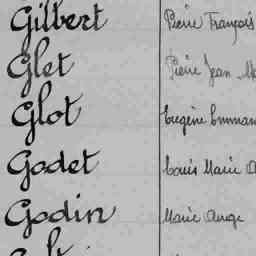 Gilbert Pierre François
Glet Pierre Jean
Glot Eugène Emman
Godet Louis Marie A
Godin Marie Ange